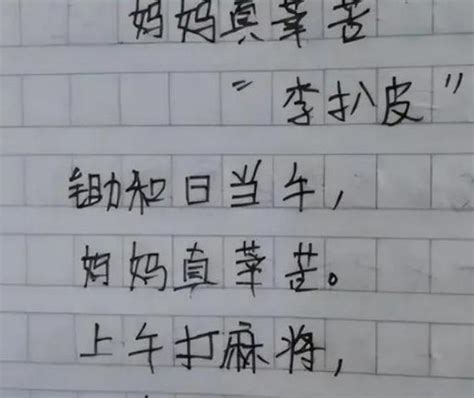 妈妈真辛苦
“李扒皮”
锄和日当午，
妈妈真辛苦。
上午打麻将，